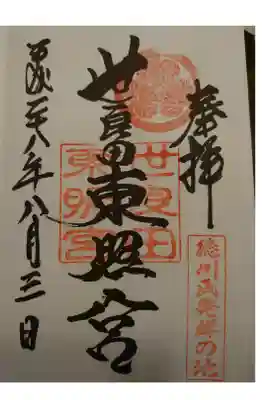 奉拝
徳川氏発祥の地
世良田東照宮
世良田
東照宮
平成二十八年八月三日